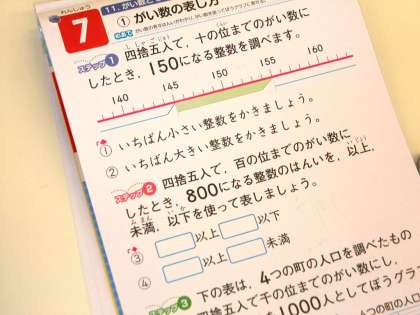 れんしゅう
7
11. がい数と
① がい数の表し方
めあて
ステップ1 四捨五入で、十の位までのがい数に
したとき、150になる整数を調べます。
140 145 150 155 160
① いちばん小さい整数をかきましょう。
② いちばん大きい整数をかきましょう。
ステップ2 四捨五入で、百の位までのがい数に
したとき、800になる整数のはんいを、以上、
未満、以下を使って表しましょう。
③ 以上 以下
④ 以上 未満
ステップ3 下の表は、4つの町の人口を調べたもの
四捨五入で千の位までのがい数にし、
1000人としてぼうグラフ